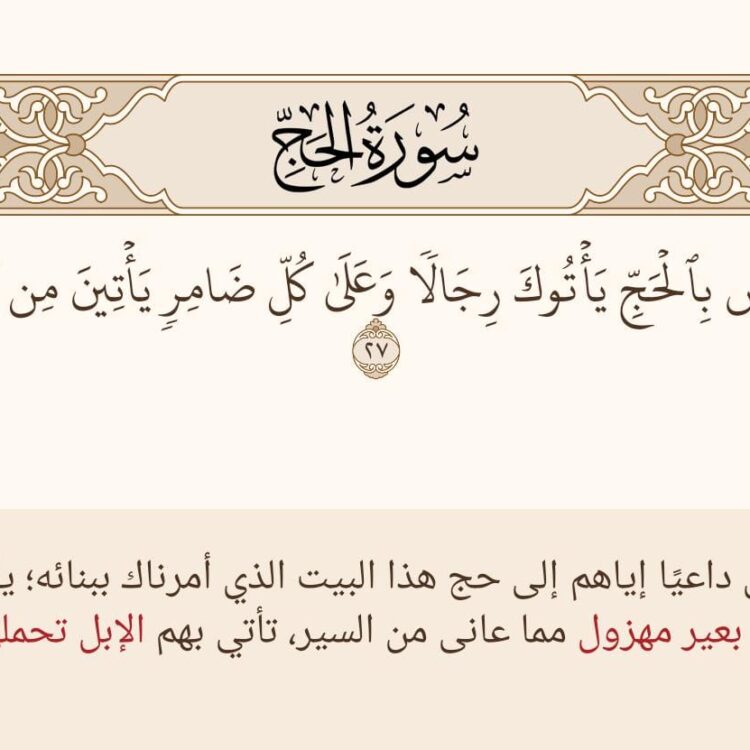 سُورَةُ الحَجِّ
بِٱلۡحَجِّ يَأۡتُوكَ رِجَالٗا وَعَلَىٰ كُلِّ ضَامِرٖ يَأۡتِينَ مِن
٢٧
داعيًا إياهم إلى حج هذا البيت الذي أمرناك ببنائه؛
بعير مهزول مما عانى من السير، تأتي بهم الإبل